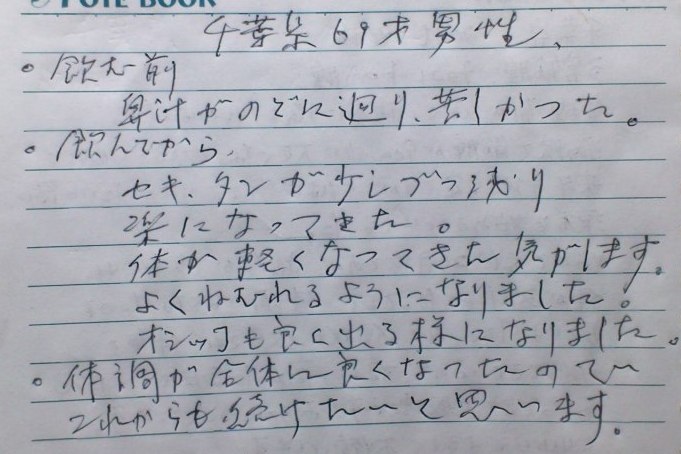 NOTE BOOK
千葉県69才男性、
。飲む前
鼻汁がのどに廻り、苦しかった。
。飲んでから、
セキ、タンが少しづつ減り
楽になってきた。
体が軽くなってきた気がします。
よくねむれるようになりました。
オシッコも良く出る様になりました。
。体調が全体に良くなったので
これからも続けたいと思います。